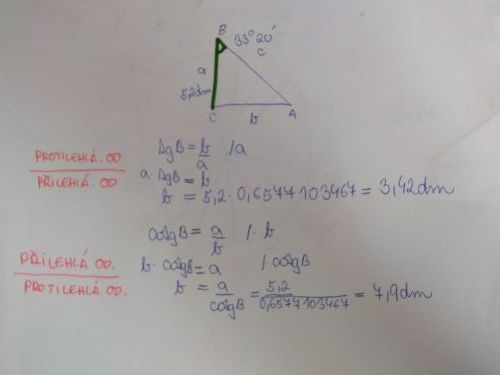 B
33°20'
a
c
5,2dm
C
b
A
tgB = b/a /a
PROTILEHLÁ. OD
PŘILEHLÁ. OD
a tgB = b
b = 5,2 · 0,6577103467 = 3,42dm
cotgB = a/b /· b
PŘILEHLÁ OD.
PROTILEHLÁ OD.
b · cotgB = a /· cotgB
b = a/cotgB = 5,2/0,6577103467 = 7,9dm